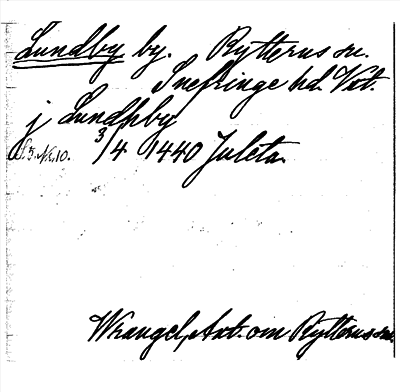 Lundby by. Rytterns sn.
Snefringe hd. Vst.
j Lundhby
S. 3. Nr. 10. 3/4 1440 Juleta.
Wrangel, Ant. om Rytterns sn.